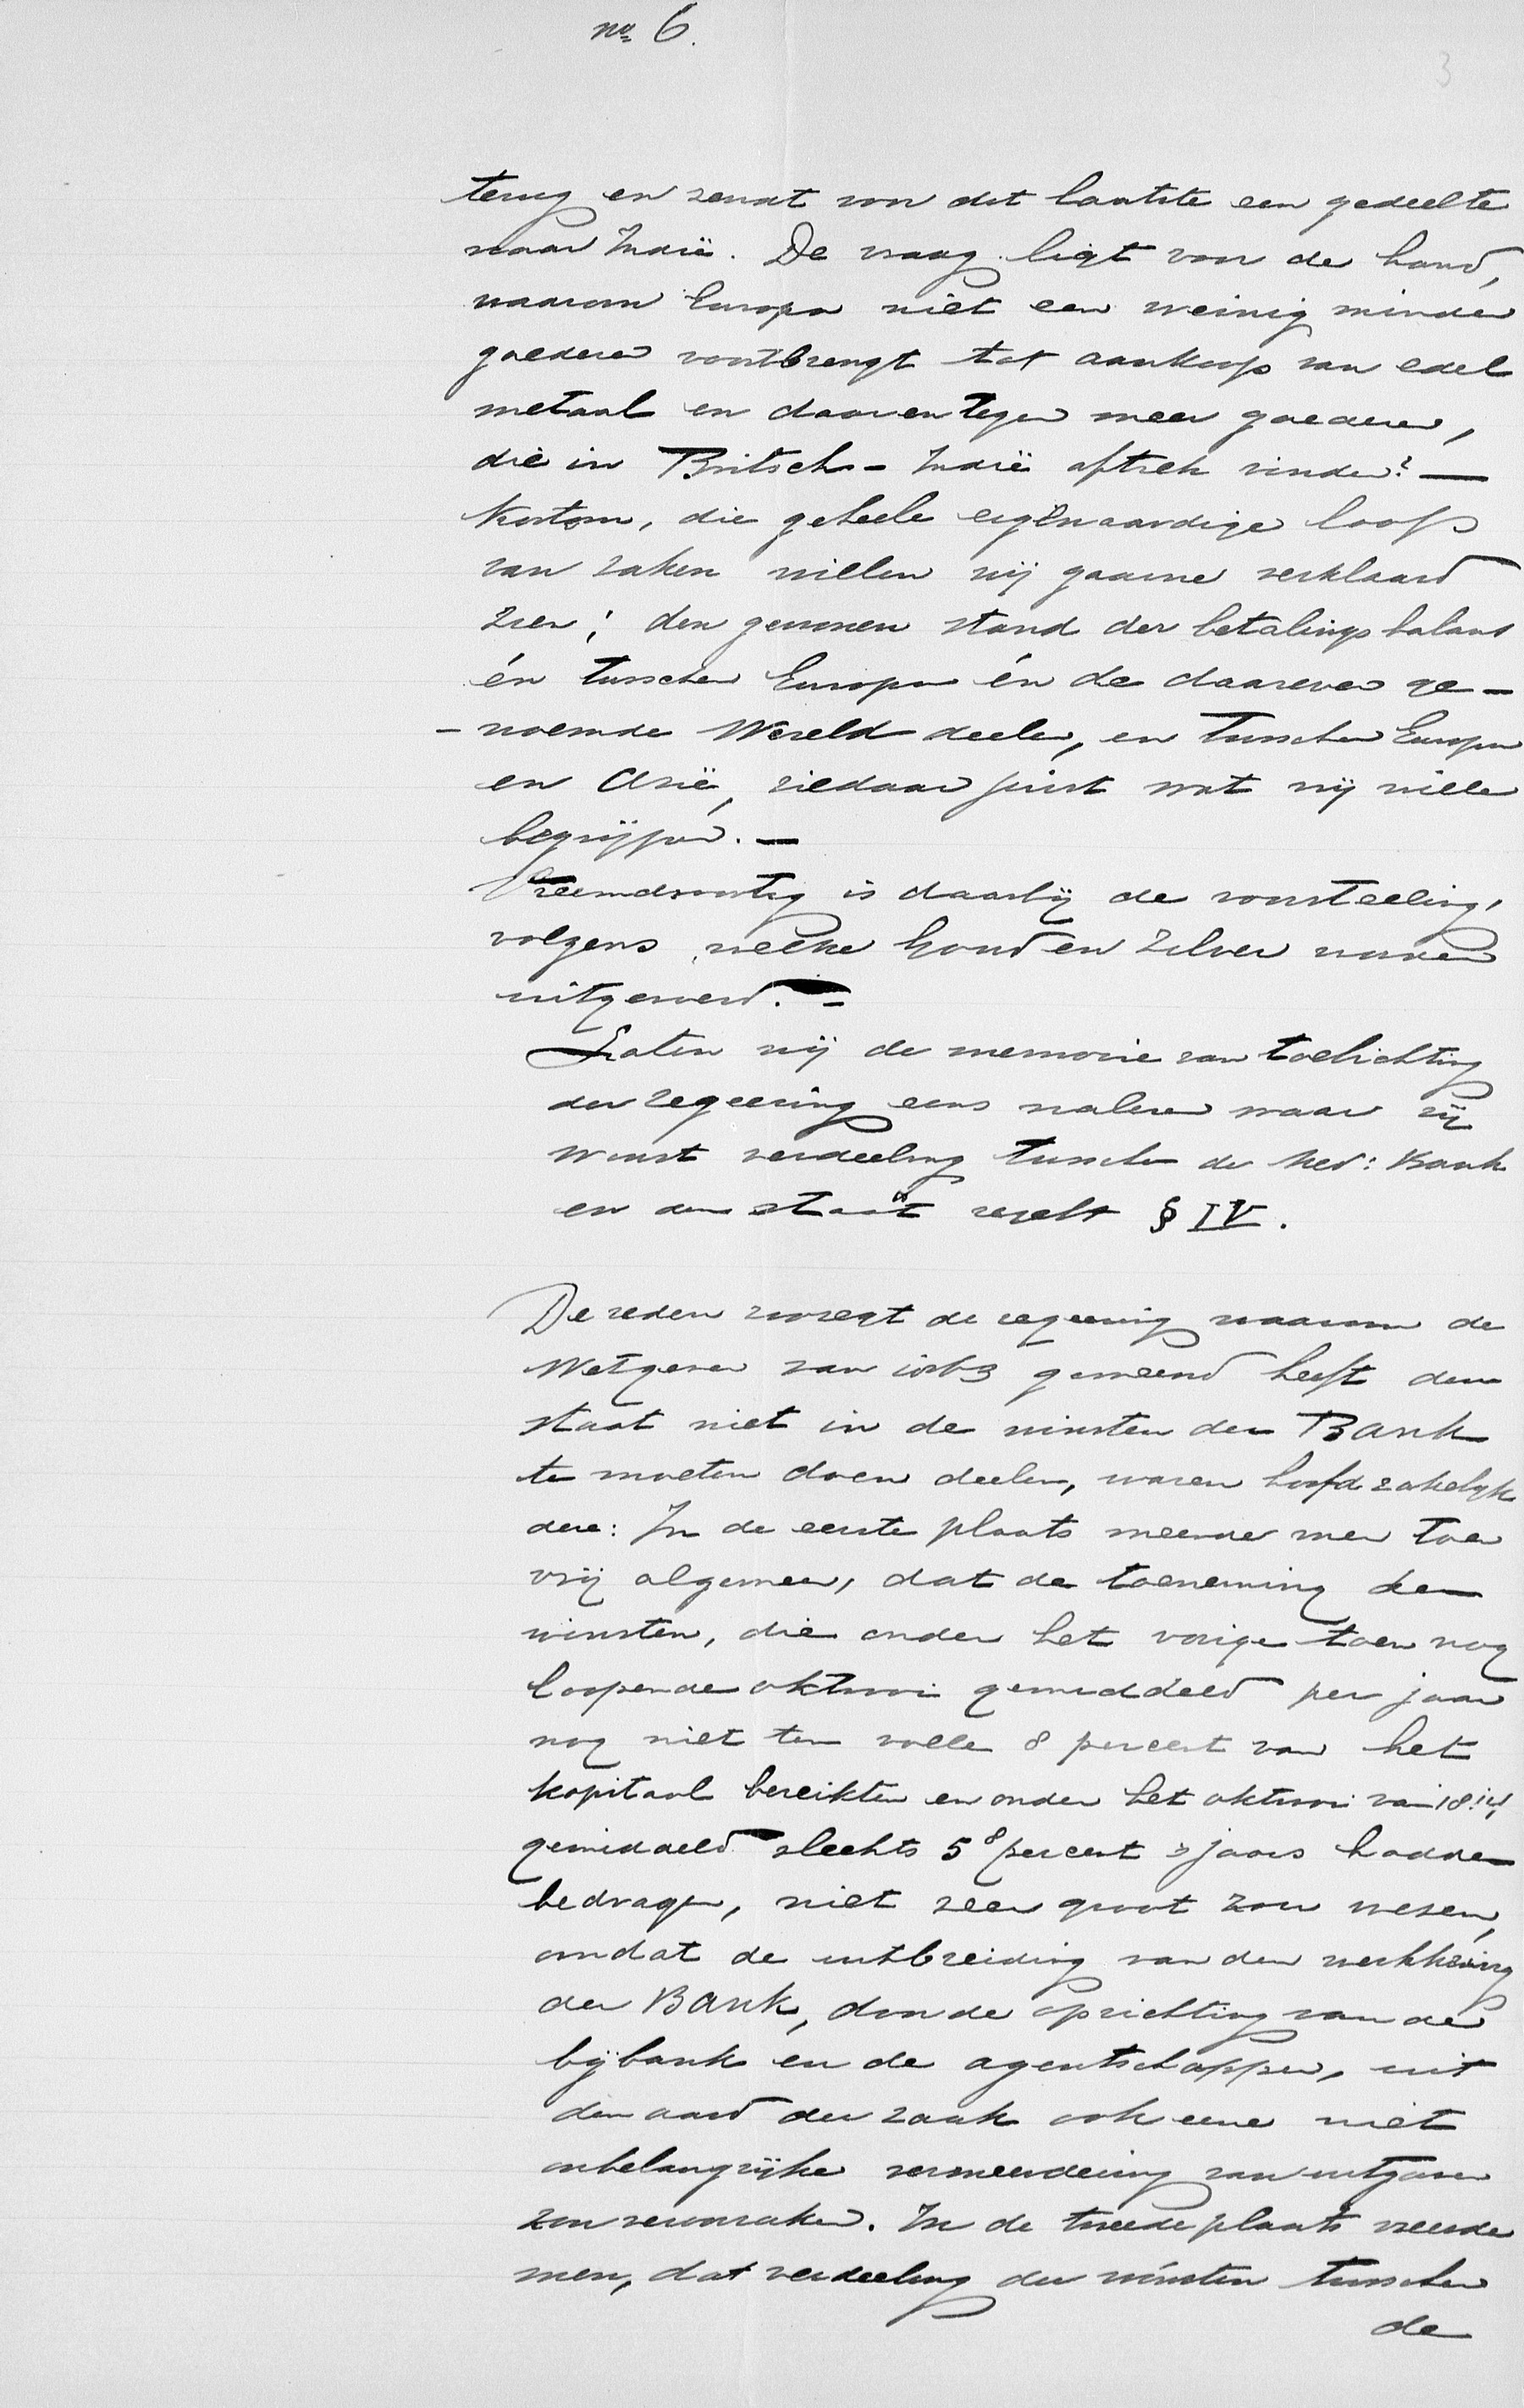 no 6.
3
terug en zendt van dit laatste een gedeelte
naar Indië. De vraag ligt voor de hand,
waarom Europa niet een weinig minder
goederen voortbrengt tot aankoop van edel
metaal en daarentegen meer goederen,
die in Britsch-Indië aftrek vinden? —
Kortom, die geheele eigenaardige loop
van zaken willen wij gaarne verklaard
zien; den gewonen stand der betalingsbalans
én tusschen Europa én de daareven ge-
-noemde Werelddeelen, en tusschen Europa
en Azië, ziedaar juist wat wij willen
begrijpen. —
Vreemdsoortig is daarbij de voorstelling,
volgens welke goud en zilver worden
uitgevoerd. =
Laten wij de memorie van toelichting
der regeering eens nalezen waar zij
winst verdeeling tusschen de Ned: Bank
en den staat regelt § IV.
De reden zoo zegt de regeering waarom de
Wetgever van 1863 gemeend heeft den
staat niet in de winsten der Bank
te moeten doen deelen, waren hoofdzakelijk
deze: In de eerste plaats meende men toen
vrij algemeen, dat de toeneming der
winsten, die onder het vorige toen nog
loopende oktrooi gemiddeld per jaar
nog niet ten volle 8 percent van het
kapitaal bereikten en onder het oktrooi van 1814
gemiddeld slechts 5 8 percent 's jaars hadden
bedragen, niet zeer groot zou wezen,
omdat de uitbreiding van den werkkring
der Bank, door de oprichting van de
bijbank en de agentschappen, uit
den aard der zaak ook eene niet
onbelangrijke vermeerdering van uitgaven
zou veroorzaken. In de tweede plaats vreesde
men, dat verdeeling der winsten tusschen
de